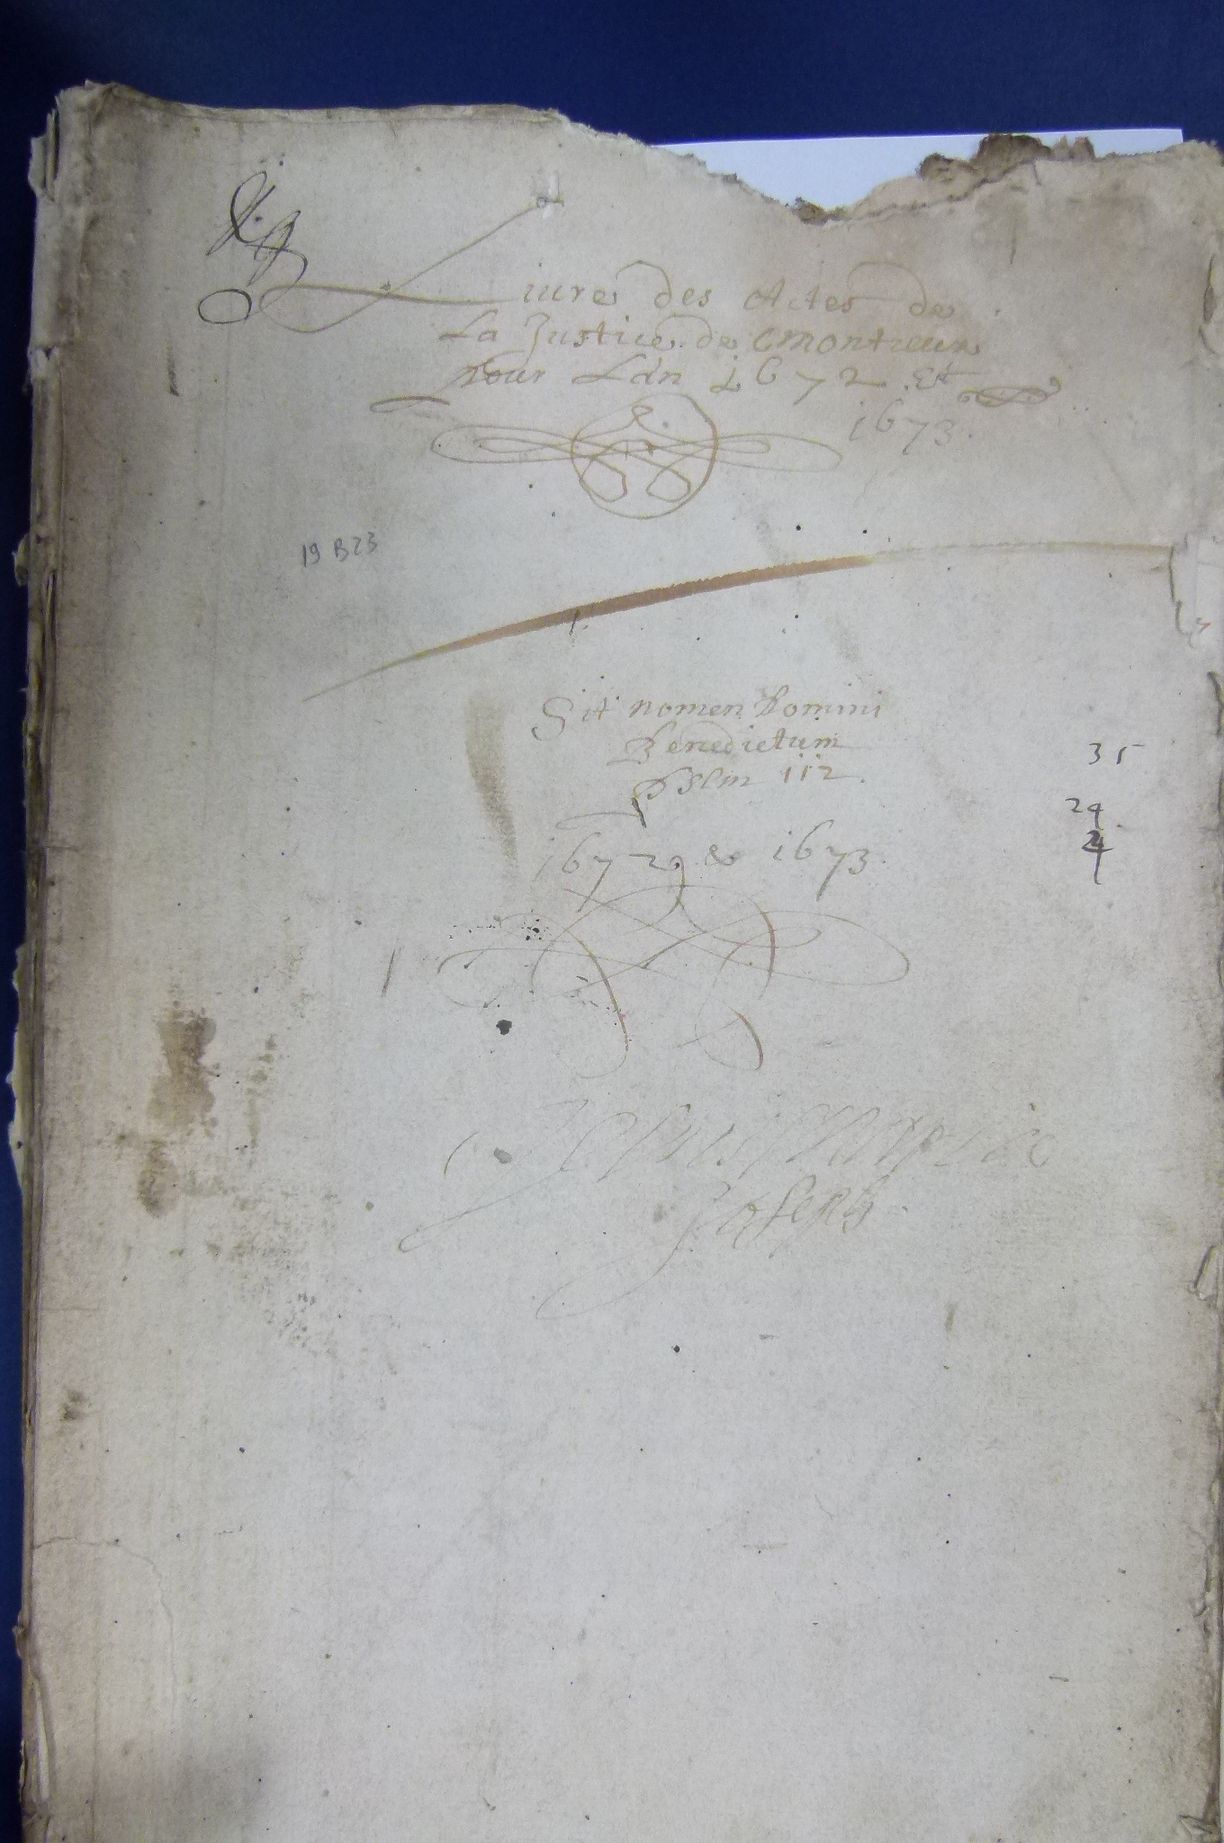 Liure des Actes de
La Justice de Montreux
pour Lan 1672 Et
1673.
19 B23
Sit nomen Domini
Benedictum
Pslm 112.
35
24
1672 & 1673
Jesus Maria
Joseph